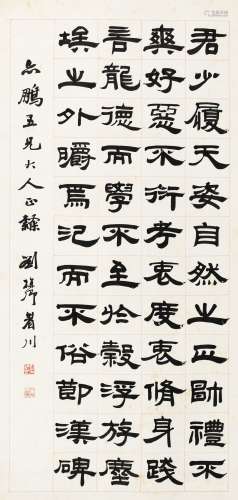 君少履天姿自然之正帥禮不
爽好惡不衍考衷度衷脩身踐
言龍德而學不至於穀浮游塵
埃之外皭焉汜而不俗即漢碑
鵬五兄大人正隸 劉